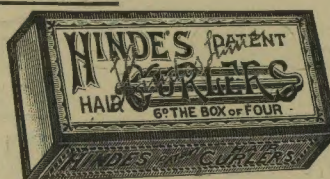 HINDE'S PATENT
HAIR CURLERS
6D THE BOX OF FOUR
HINDES CURLERS
HAIR